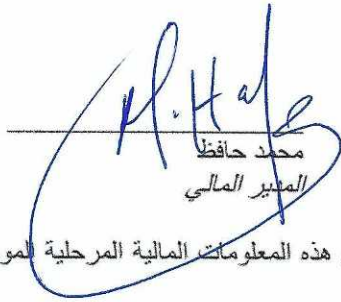 M. Haf
محمد حافظ
المدير المالي
هذه المعلومات المالية المرحلية المو